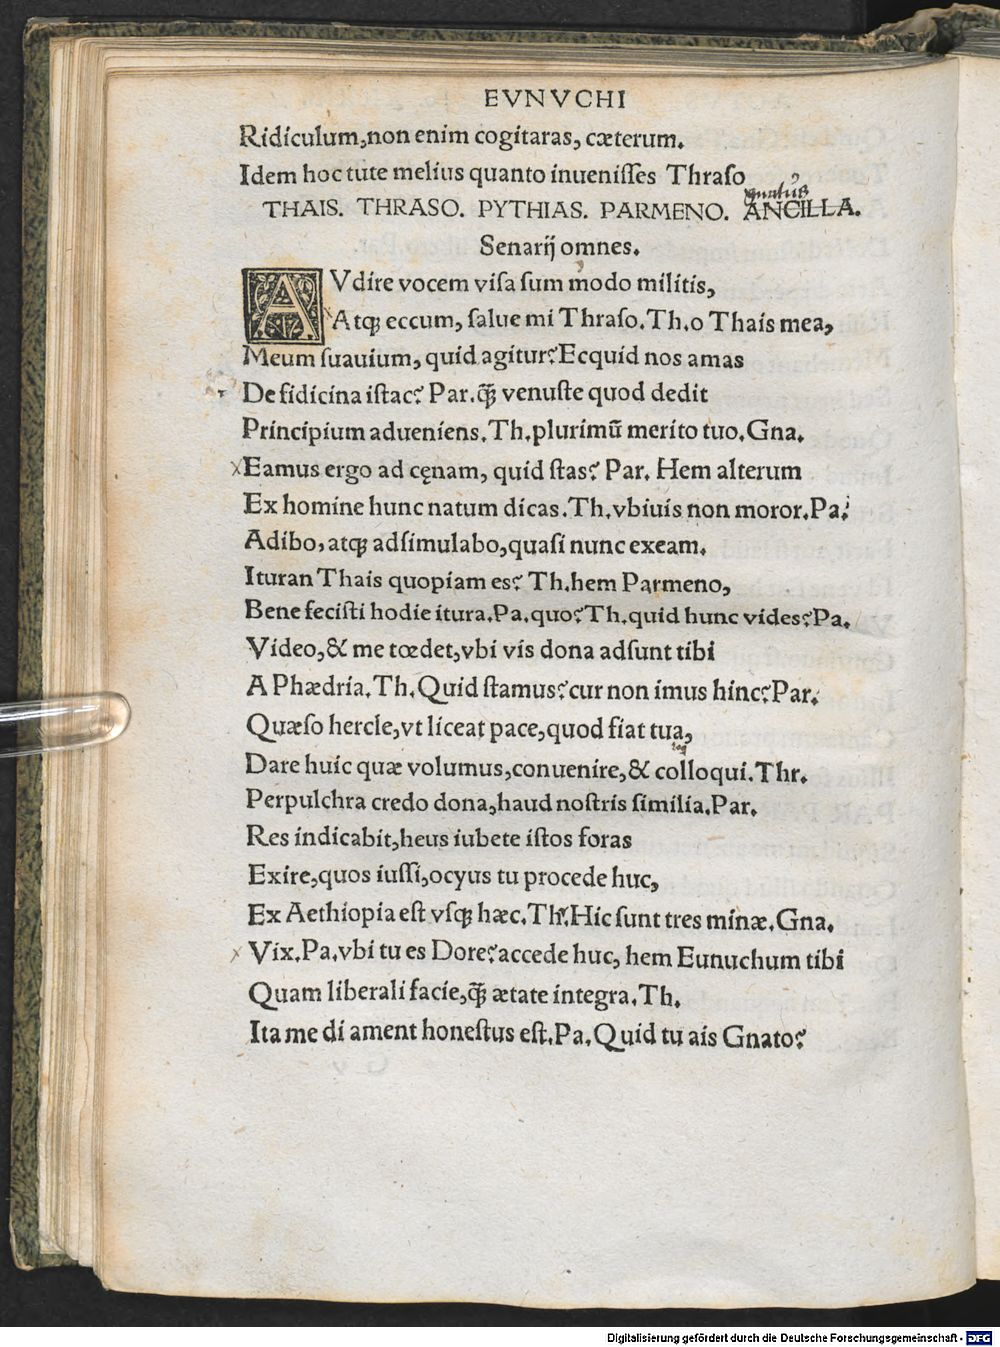 EVNVCHI
Ridiculum, non enim cogitaras, cæterum.
Idem hoc tute melius quanto inuenisſes Thraſo
gnatus
THAIS. THRASO. PYTHIAS. PARMENO. ANCILLA.
Senarij omnes.
AVdire vocem viſa ſum modo militis,
Atqꝫ eccum, ſalue mi Thraſo. Th. o Thais mea,
Meum ſuauium, quid agitur? Ecquid nos amas
De fidicina iſtac? Par. q̃ꝫ venuſte quod dedit
Principium adueniens. Th. plurimũ merito tuo. Gna.
Eamus ergo ad cęnam, quid ſtas? Par. Hem alterum
Ex homine hunc natum dicas. Th. vbiuis non moror. Pa.
Adibo, atqꝫ adſimulabo, quaſi nunc exeam.
Ituran Thais quopiam es? Th. hem Parmeno,
Bene feciſti hodie itura. Pa. quo? Th. quid hunc vides? Pa.
Video, & me tœdet, vbi vis dona adſunt tibi
A Phædria. Th. Quid ſtamus? cur non imus hinc? Par.
Quæſo hercle, vt liceat pace, quod fiat tua,
Dare huic quæ volumus, conuenire, & colloqui. Thr.
Perpulchra credo dona, haud noſtris ſimilia. Par.
Res indicabit, heus iubete iſtos foras
Exire, quos iuſſi, ocyus tu procede huc,
Ex Aethiopia eſt vſqꝫ hæc. Thr. Hic ſunt tres minæ. Gna.
Vix. Pa. vbi tu es Dore? accede huc, hem Eunuchum tibi
Quam liberali facie, q̃ꝫ ætate integra. Th.
Ita me di ament honeſtus eſt. Pa. Quid tu ais Gnato?
Digitalisierung gefördert durch die Deutsche Forschungsgemeinschaft - DFG